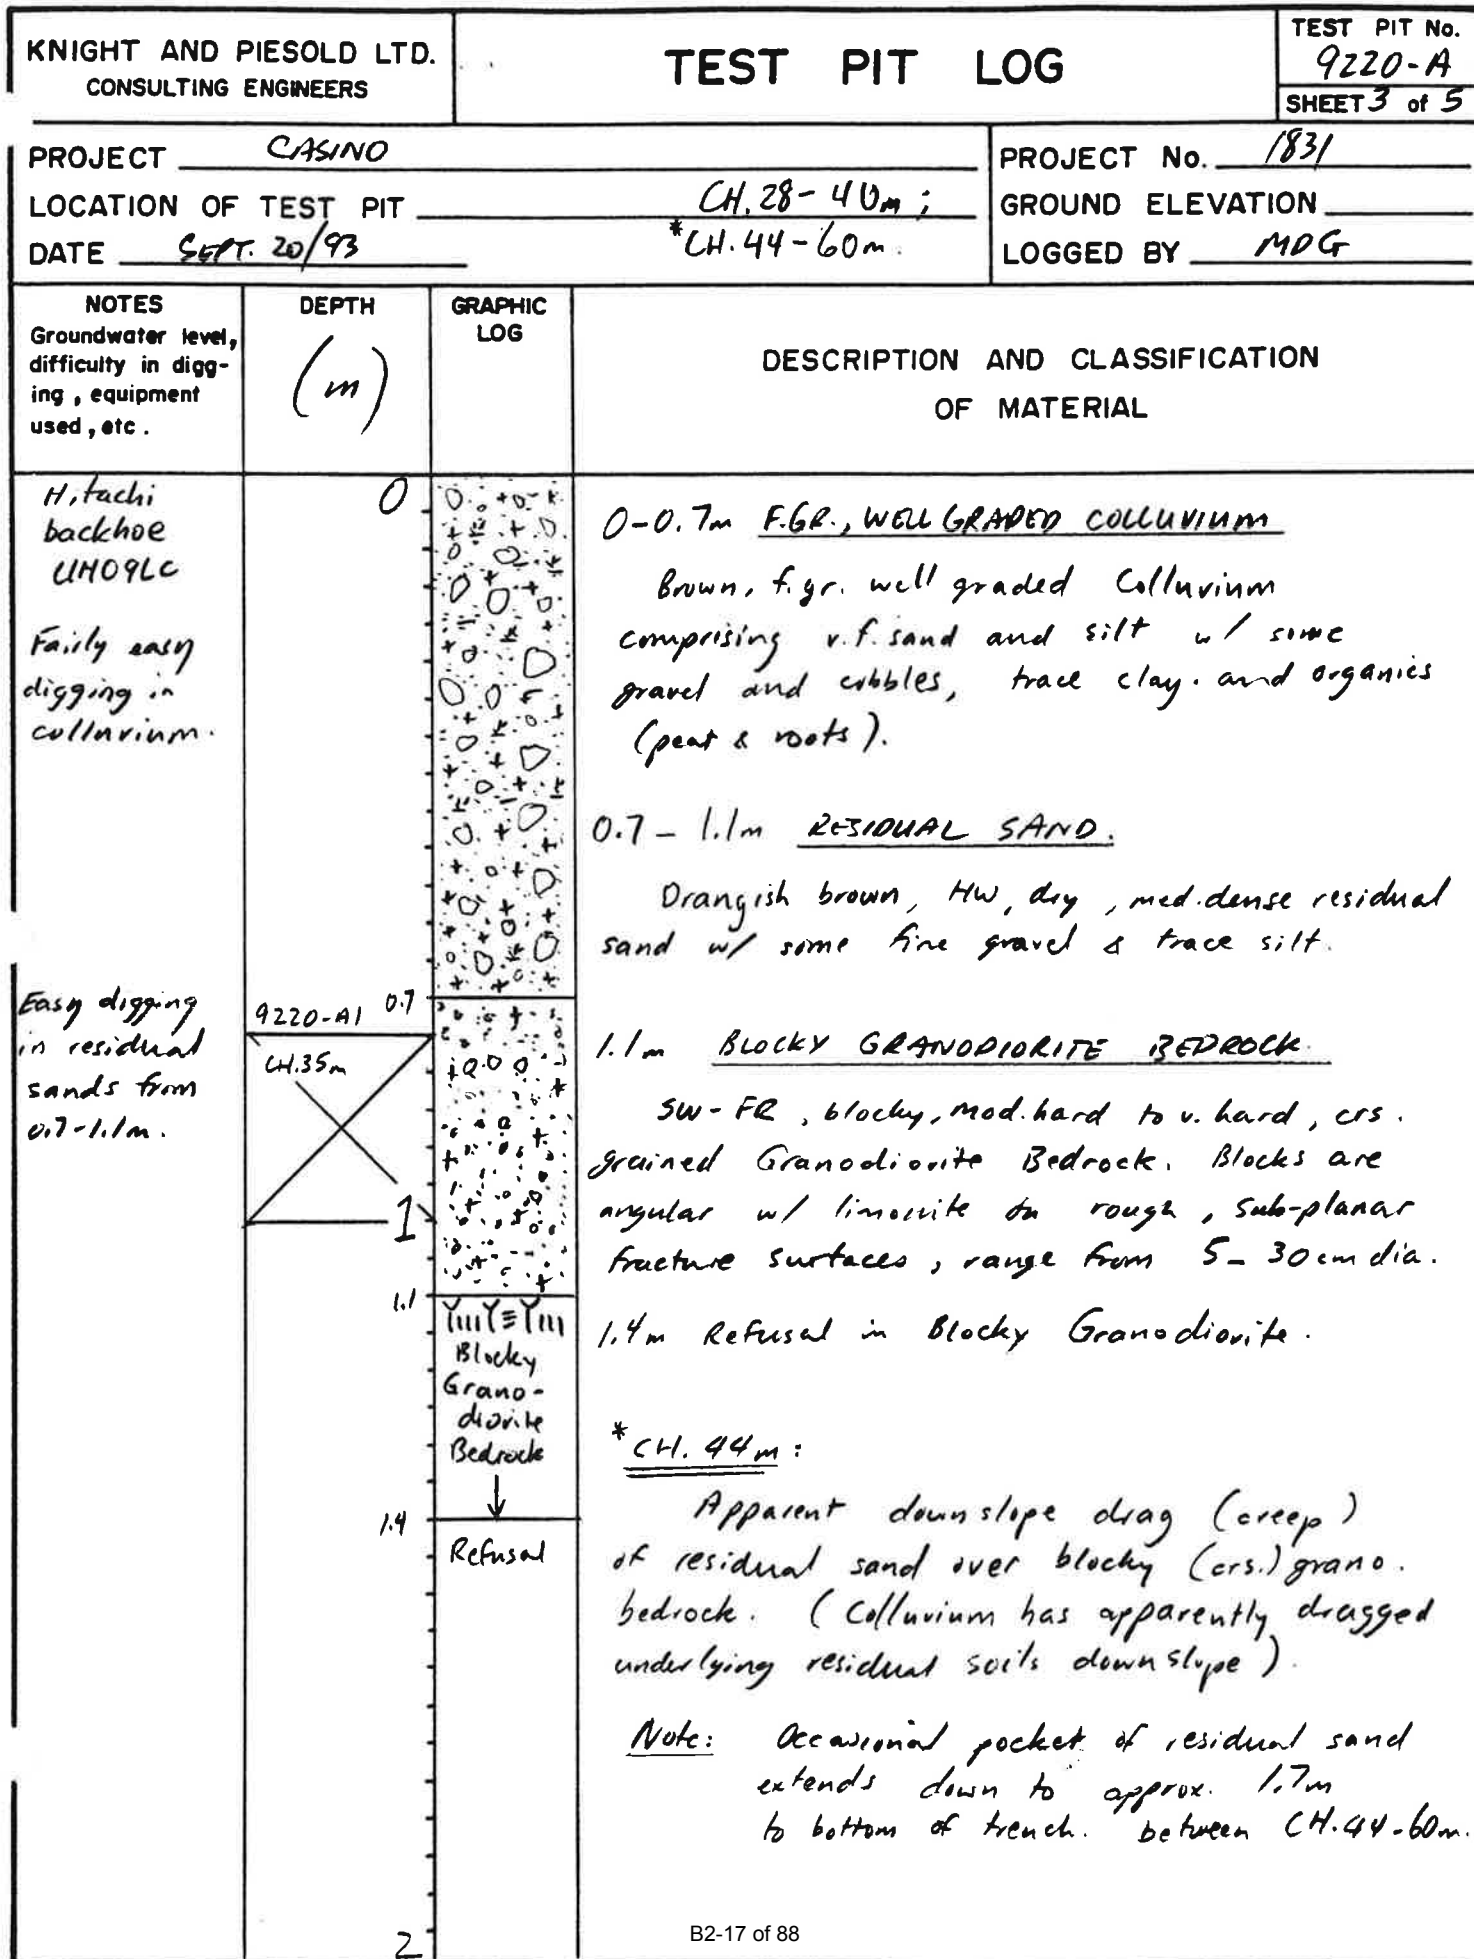 KNIGHT AND PIESOLD LTD.
CONSULTING ENGINEERS
TEST PIT LOG
TEST PIT No.
9220-A
SHEET 3 of 5
PROJECT CASINO
LOCATION OF TEST PIT CH. 28-40m;
DATE SEPT. 20/93 *CH. 44-60m.
PROJECT No. 1831
GROUND ELEVATION
LOGGED BY MDG
NOTES
Groundwater level,
difficulty in digg-
ing, equipment
used, etc.
DEPTH
(m)
GRAPHIC
LOG
DESCRIPTION AND CLASSIFICATION
OF MATERIAL
Hitachi
backhoe
UH09LC
Fairly easy
digging in
colluvium.
Easy digging
in residual
sands from
0.7-1.1m.
0
0.7
9220-A1
CH.35m
1
1.1
1.4
2
Blocky
Grano-
diorite
Bedrock
Refusal
0-0.7m F.GR., WELL GRADED COLLUVIUM
Brown, f.gr. well graded Colluvium
comprising v.f. sand and silt w/ some
gravel and cobbles, trace clay. and organics
(peat & roots).
0.7 - 1.1m RESIDUAL SAND.
Orangish brown, HW, dry, med.dense residual
sand w/ some fine gravel & trace silt.
1.1m BLOCKY GRANODIORITE BEDROCK.
SW-FR, blocky, mod.hard to v. hard, crs.
grained Granodiorite Bedrock. Blocks are
angular w/ limonite on rough, sub-planar
fracture surfaces, range from 5-30cm dia.
1.4m Refusal in Blocky Granodiorite.
*CH. 44m:
Apparent downslope drag (creep)
of residual sand over blocky (crs.) grano.
bedrock. (Colluvium has apparently dragged
underlying residual soils downslope).
Note: Occasional pocket of residual sand
extends down to approx. 1.7m
to bottom of trench. between CH.44-60m.
B2-17 of 88